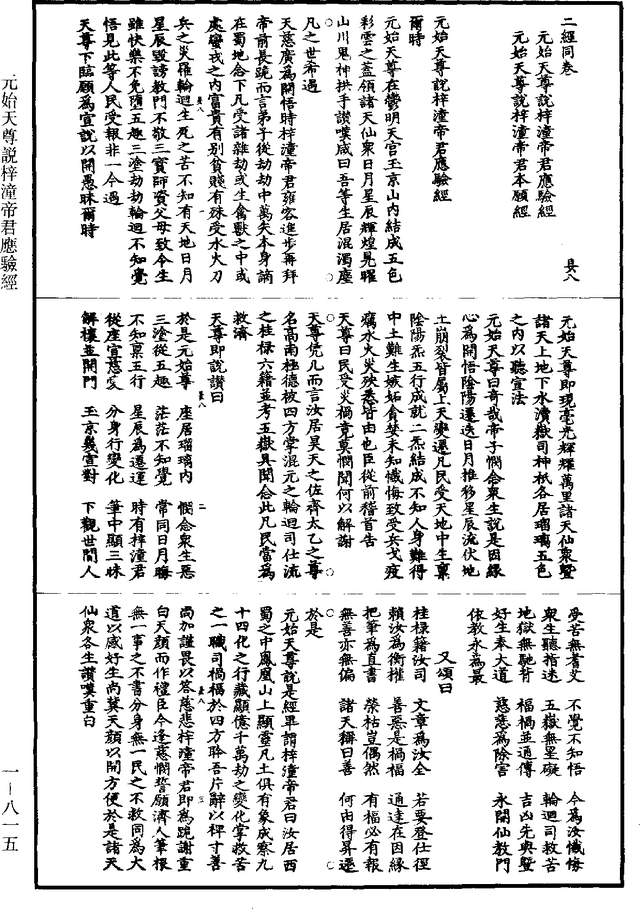 二經同卷　縣八
元始天尊說梓潼帝君應驗經
元始天尊說梓潼帝君本願經
元始天尊說梓潼帝君應驗經
爾時
元始天尊在鬱明天宮玉京山內結成五色
彩雲之蓋領諸天仙眾日月星辰輝煌晃曜
山川鬼神拱手讚嘆咸曰吾等生居混濁塵
凡之世希遇
天慈廣為開悟時梓潼帝君雍容進步再拜
帝前長跪而言弟子從劫劫中萬失本身謫
在蜀地念下凡受諸雜劫或生禽獸之中或
處蠻戎之內富貴有別貧賤有殊受水火刀
兵之災羅輪迴生死之苦不知有天地日月
星辰毀謗教門不敬三寶師資父母致令生
雖快樂不免墮五趣三塗劫劫輪迴不知覺
悟見此等人民受報非一今遇
天尊下臨願為宣說以開愚昧爾時
元始天尊即現毫光輝耀萬里諸天仙眾暨
諸天上地下水瀆嶽司神祇各居瑠璃五色
之內以聽宣法
元始天尊曰奇哉帝子憫念眾生說是因緣
心為開悟陰陽還迭日月推移星辰流伏地
土崩裂皆屬上天變運凡民受天地中生稟
陰陽炁五行成就二炁結成不知人身難得
中土難生嫉妬貪婪未知懺悔致受兵戈疫
癘水火災殃悉皆由也臣從前稽首告
天尊曰民受災禍竟莫憫閔何以解謝
天尊凭几而言汝居昊天之佐齊太乙之尊
名高南極德被四方掌混元之輪迴司仕流
之桂祿六籍並考五嶽具聞念此凡民當為
救濟
天尊即說讚曰
於是元始尊　座居瑠璃內　憫念眾生惡
三塗從五趣　茫茫不知覺　常同日月晦
不知稟五行　星辰為還運　時有梓潼君
從座宣慈爱　分身行變化　筆中顯三昧
解穰並開門　玉京幾宣對　下觀世間人
受苦無耆艾　不覺不知悟　今為汝懺悔
眾生聽指迷　五嶽無星礙　輪迴司救苦
地獄無馳背　福禍並通傳　吉凶先與暨
好生奉大道　慈悲為除害　永開仙教門
依教永為最
又頌曰
桂祿籍汝司　文章為汝全　若要登仕徑
賴汝為衡權　善惡是禍福　通達在因緣
把筆為直書　榮枯豈偶然　有福必有報
無善亦無偏　諸天稱曰善　何由得昇還
於是
元始天尊說是經畢謂梓潼帝君曰汝居西
蜀之中鳳凰山上顯靈凡土俱有象成察九
十四化之行藏顯億千萬劫之變化掌救苦
之一職司禍福於四方聆吾片辭以稗寸善
尚加謹畏以答慈悲梓潼帝君即為跪謝重
白天顏而作禮臣今逢慈憫誓願濟人筆根
無一事之不書分身無一民之不救同為大
道以感好生尚冀天顏以開方便於是諸天
仙眾各生讚嘆重白
元始天尊説梓潼帝君應驗經
一—八一五